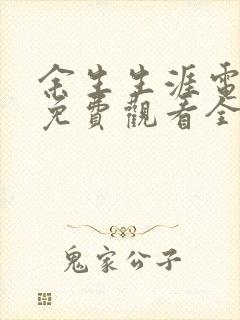 余生生涯電
免費觀看全
鬼家公子